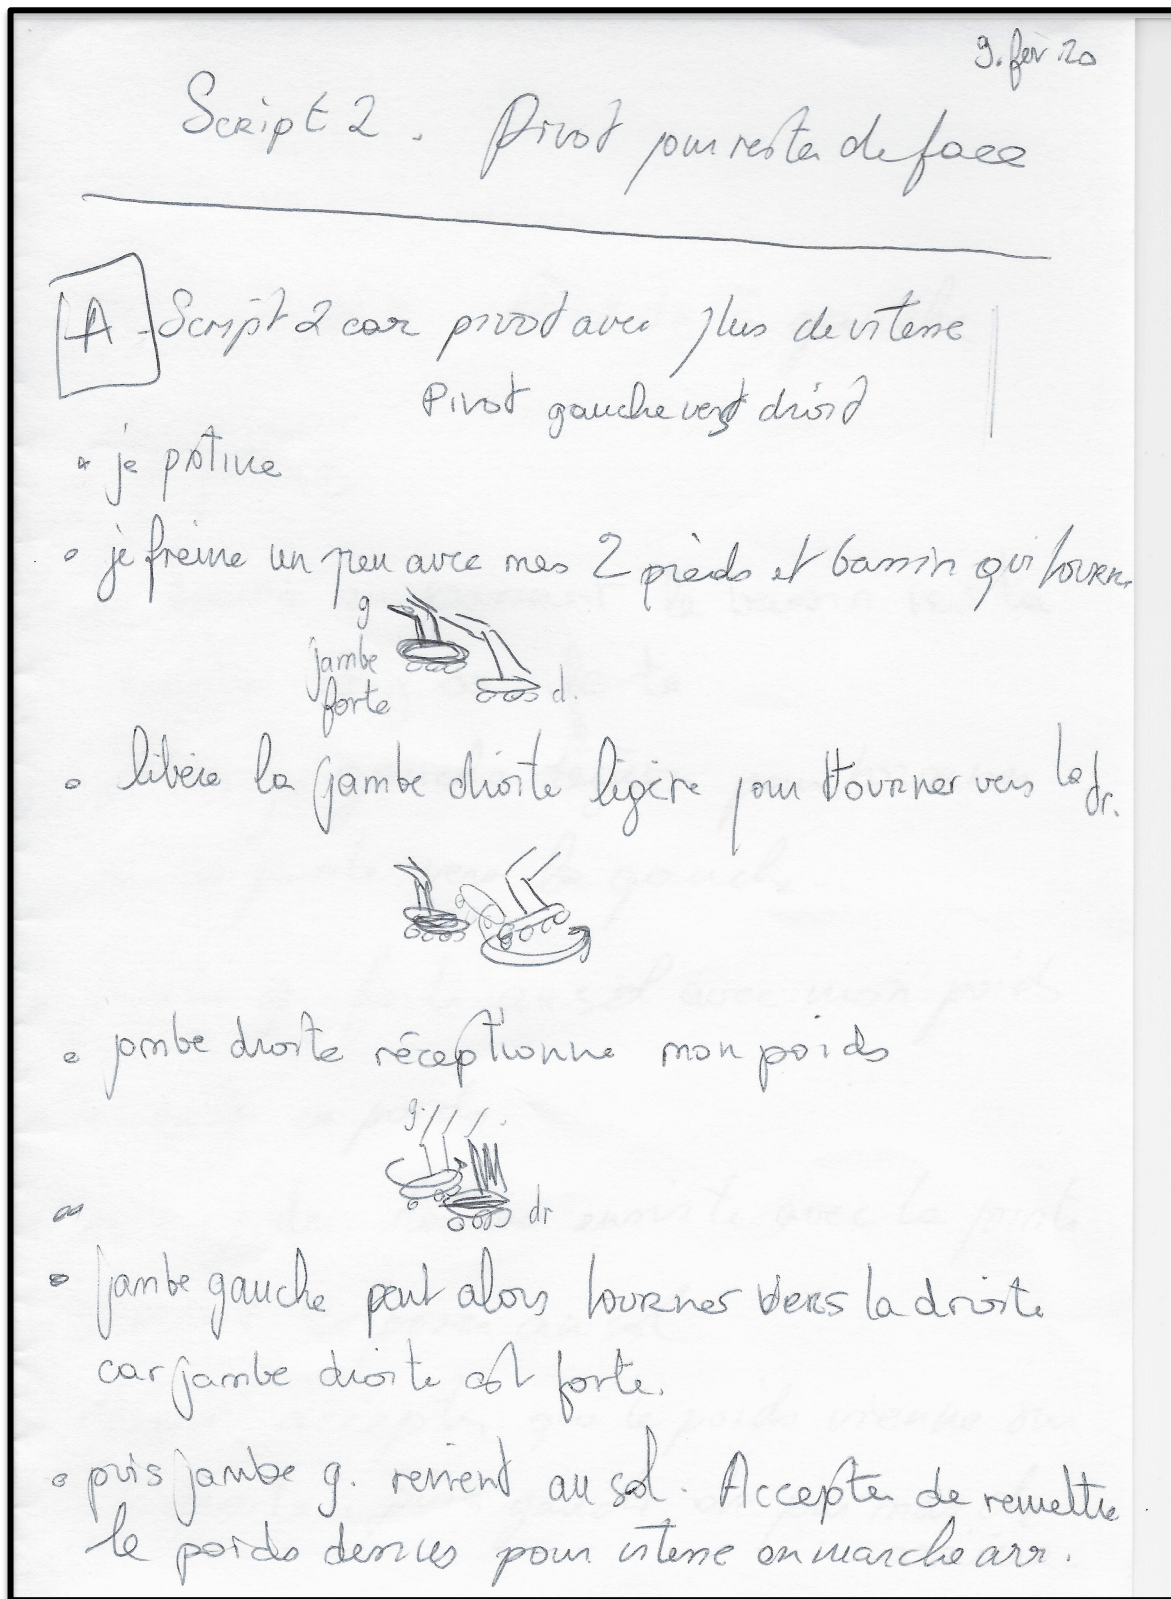 9. fév 20
Script 2. Pivot pour rester de face
A - Script 2 car pivot avec plus de vitesse
Pivot gauche vers droit
je patine
je freine un peu avec mes 2 pieds et bassin qui tourne
g
jambe
forte
d.
libère la jambe droite légère pour tourner vers la dr.
jambe droite réceptionne mon poids
g.
dr
jambe gauche peut alors tourner vers la droite
car jambe droite est forte.
puis jambe g. revient au sol. Accepter de remettre
le poids dessus pour vitesse en marche arr.